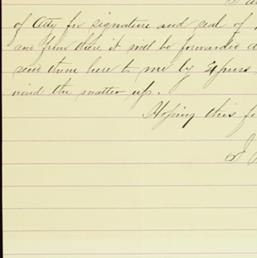 of Atty for signature and seal of
and from there it will be forwarded
send them here to me by Express
wind the matter up.
Hoping this